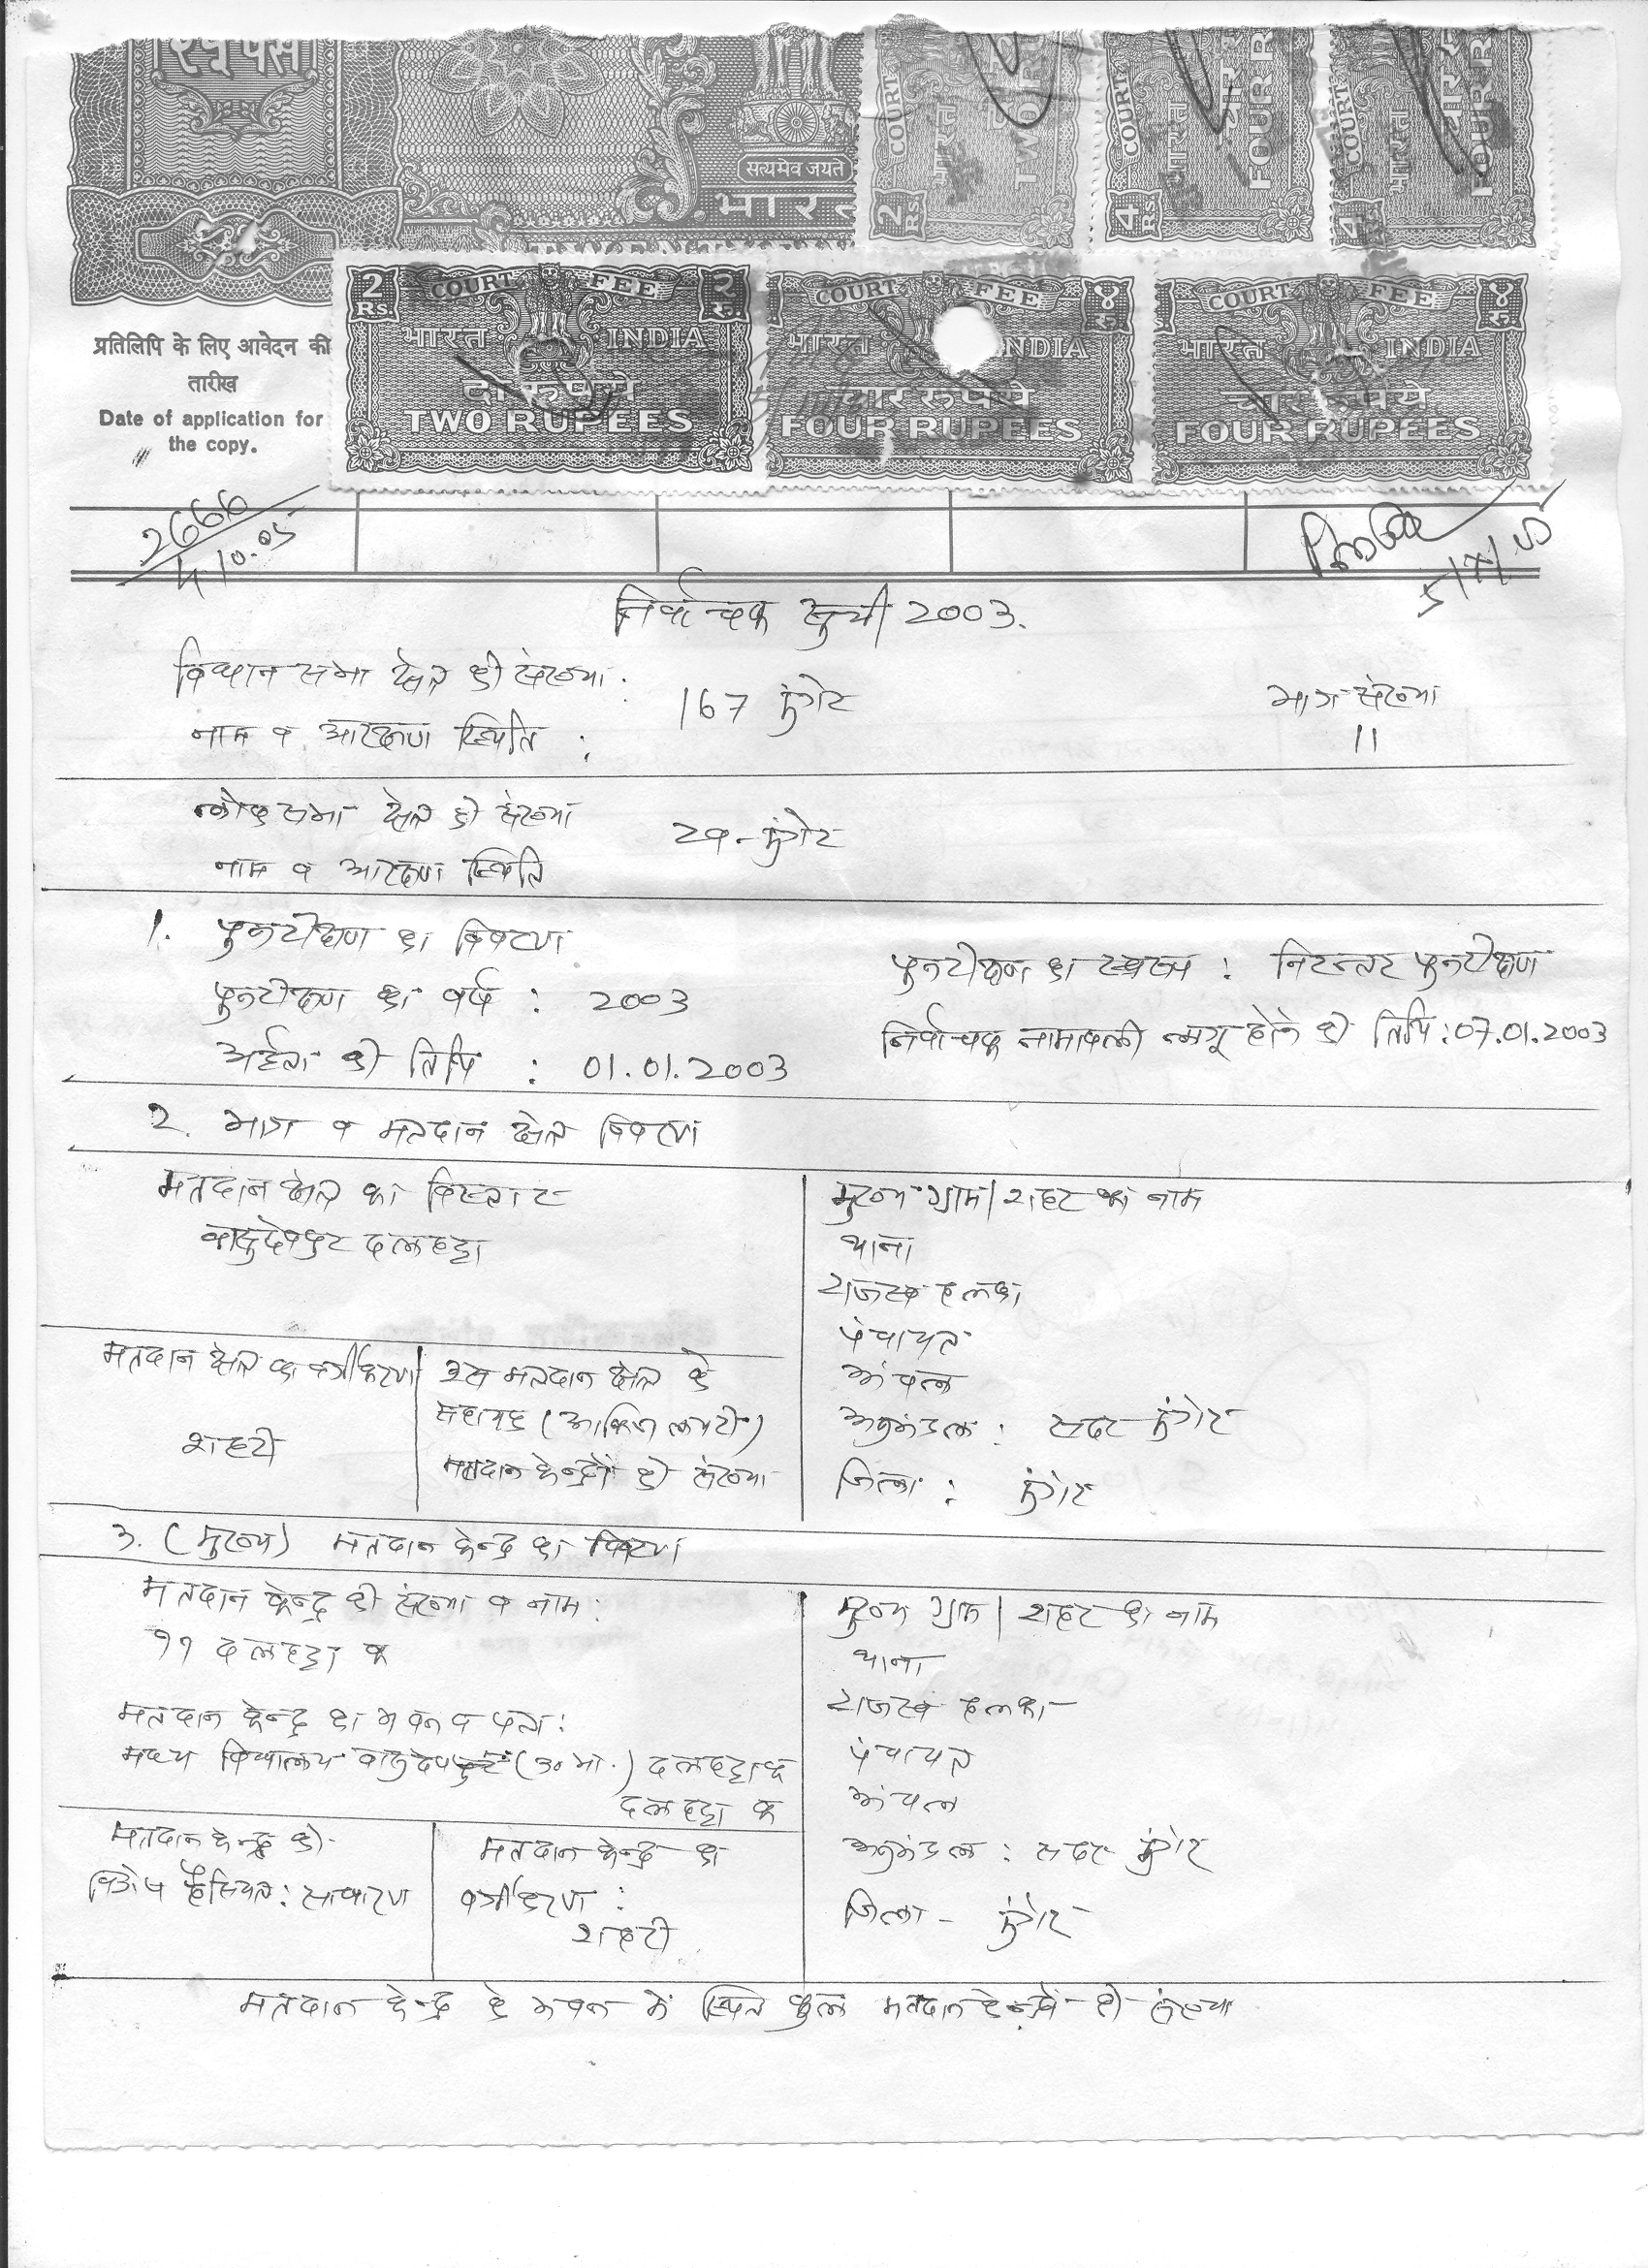 २५ पैसे
सत्यमेव जयते
भारत
COURT
भारत
TWO RU
2 Rs.
COURT
भारत
चार
FOUR R
4 Rs.
COURT
भारत
चार
FOUR R
4
2 Rs. COURT FEE २ रु.
भारत INDIA
दो रुपये
TWO RUPEES
COURT FEE ४ रु.
भारत INDIA
चार रुपये
FOUR RUPEES
COURT FEE ४ रु.
भारत INDIA
चार रुपये
FOUR RUPEES
प्रतिलिपि के लिए आवेदन की
तारीख
Date of application for
the copy.
2666
4.10.05
निर्वाचक सूची 2003.
विधान सभा क्षेत्र की संख्या : 167 मुंगेर भाग संख्या
नाम व आरक्षण स्थिति : 11
लोक सभा क्षेत्र की संख्या 29-मुंगेर
नाम व आरक्षण स्थिति
1. पुनरीक्षण का विवरण
पुनरीक्षण का स्वरूप : निरन्तर पुनरीक्षण
पुनरीक्षण का वर्ष : 2003
निर्वाचक नामावली लागू होने की तिथि : 07.01.2003
अर्हता की तिथि : 01.01.2003
2. भाग व मतदान क्षेत्र विवरण
मतदान क्षेत्र का विस्तार
वासुदेवपुर दलहट्टा
मुख्य ग्राम / शहर का नाम
थाना
राजस्व हलका
पंचायत
अंचल
अनुमंडल : सदर मुंगेर
जिला : मुंगेर
मतदान क्षेत्र का वर्गीकरण
शहरी
इस मतदान क्षेत्र के
सहायक (आक्जिलयरी)
मतदान केन्द्रों की संख्या
3. (मुख्य) मतदान केन्द्र का विवरण
मतदान केन्द्र की संख्या व नाम :
११ दलहट्टा क
मतदान केन्द्र का भवन व पता :
मध्य विद्यालय वासुदेवपुर (उ० भा.) दलहट्टा क
दलहट्टा क
मुख्य ग्राम / शहर का नाम
थाना
राजस्व हलका
पंचायत
अंचल
अनुमंडल : सदर मुंगेर
जिला - मुंगेर
मतदान केन्द्र की
विशेष हैसियत : साधारण
मतदान केन्द्र का
वर्गीकरण :
शहरी
मतदान केन्द्र के भवन में स्थित कुल मतदान केन्द्रों की संख्या